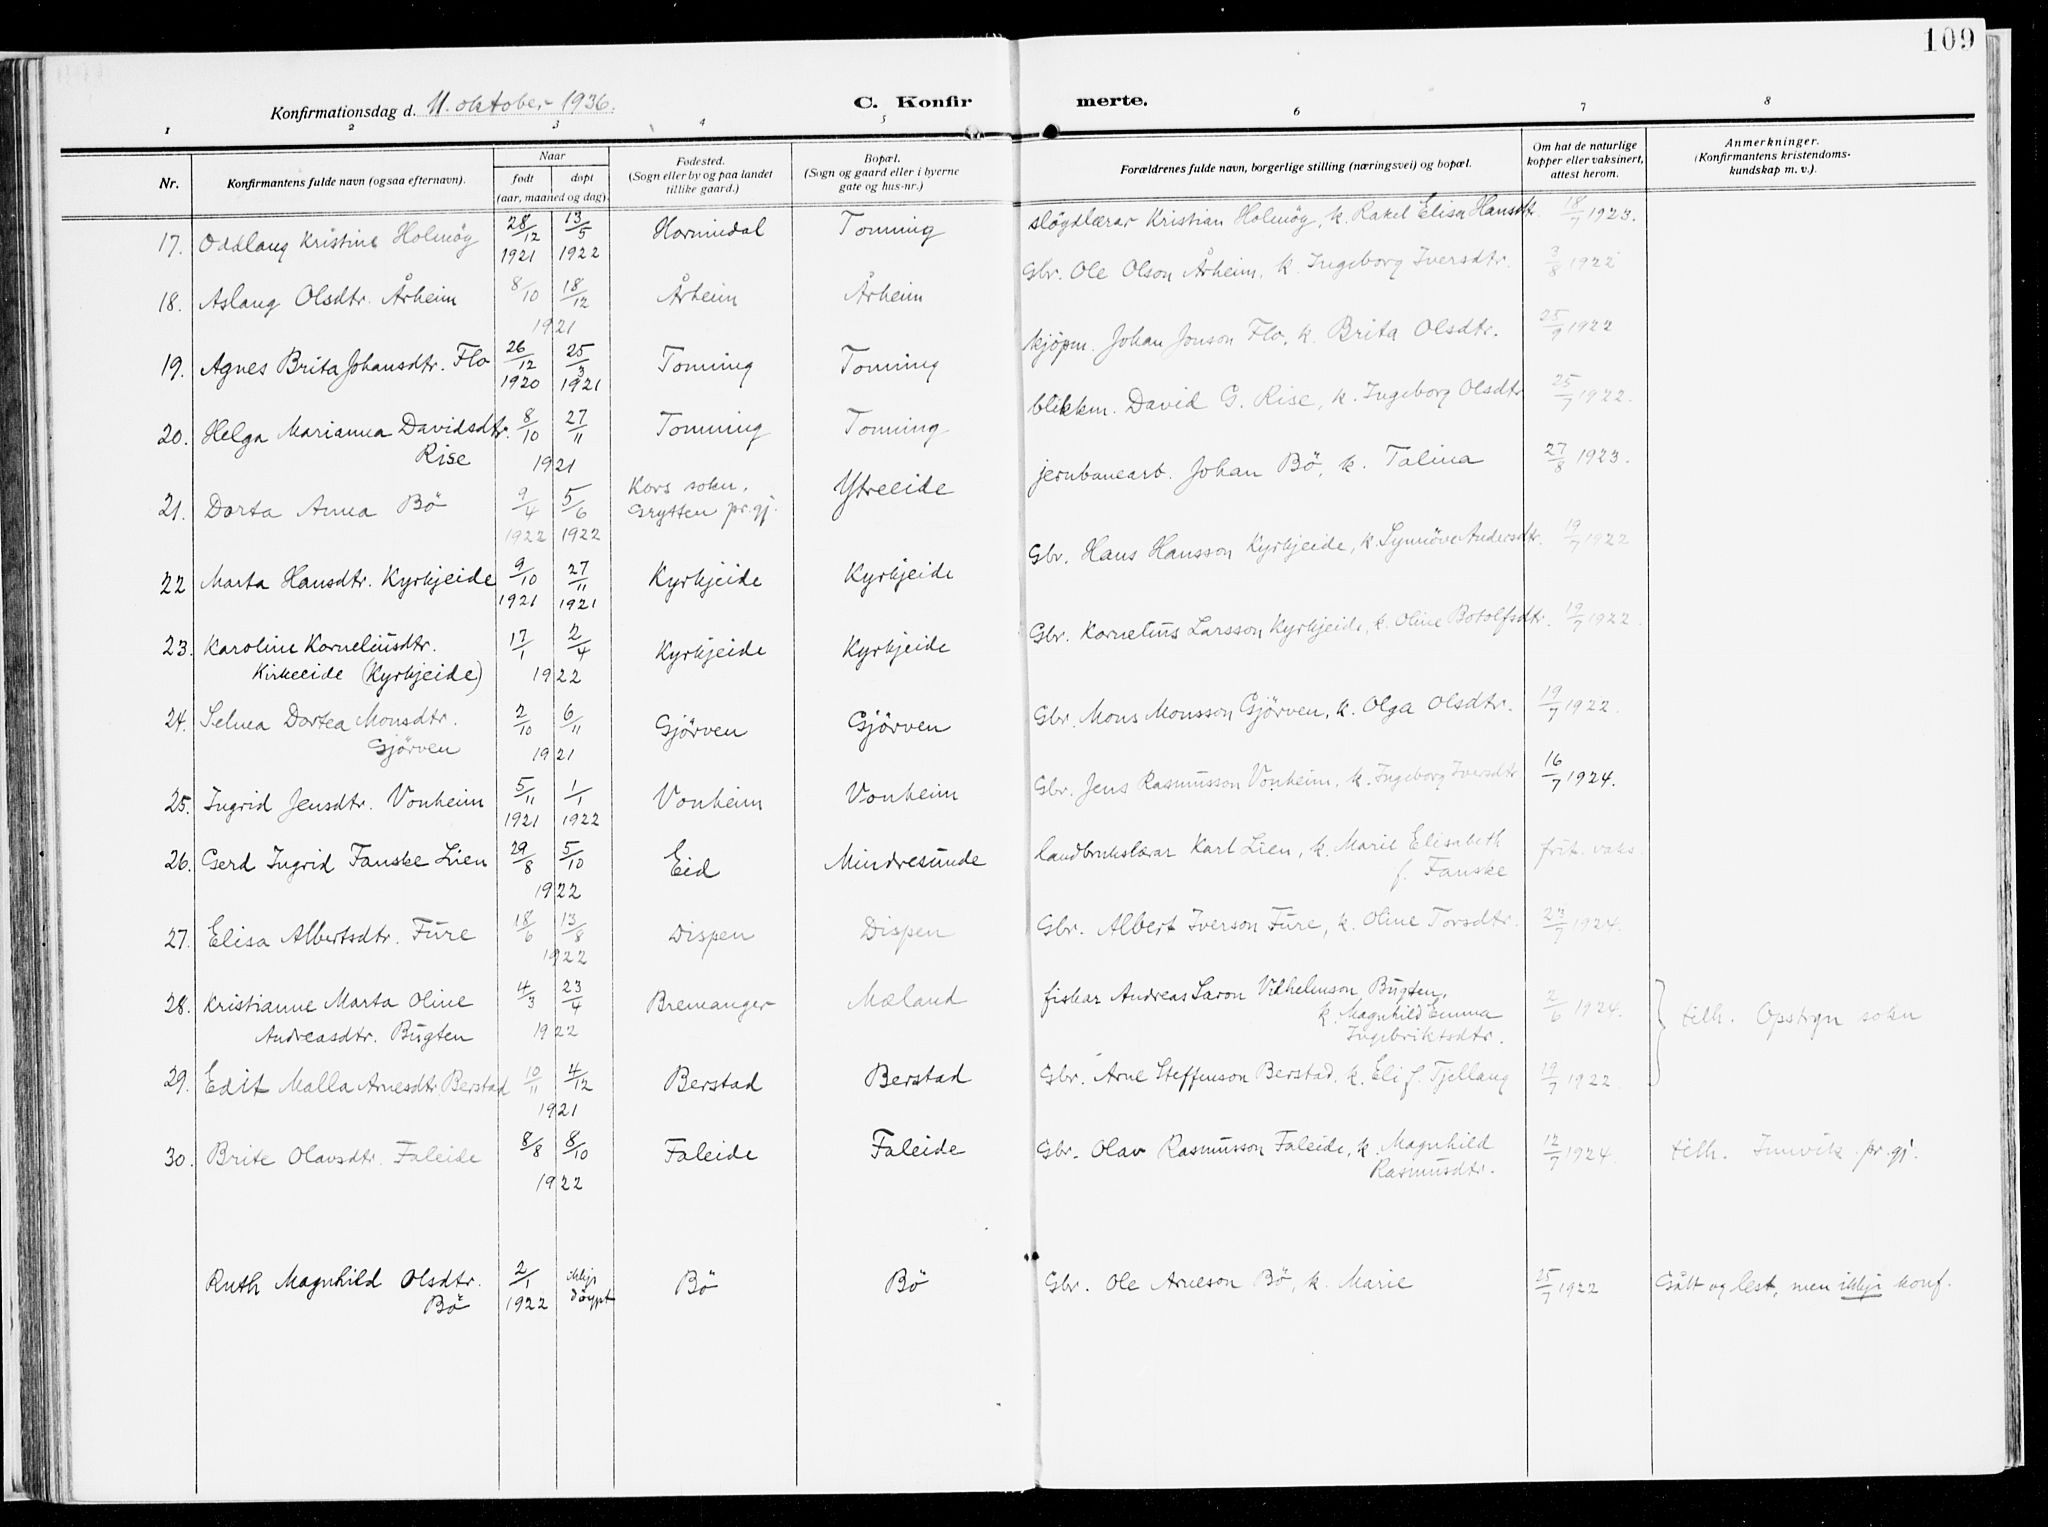 109
Konfirmationsdag d. 11. oktober 1936.
C. Konfir merte.
1 2 3 4 5 6 7 8
Nr. Konfirmantens fulde navn (ogsaa efternavn). Naar født døpt (aar, maaned og dag) Fødested. (Sogn eller by og paa landet tillike gaard.) Bopæl. (Sogn og gaard eller i byerne gate og hus-nr.) Forældrenes fulde navn, borgerlige stilling (næringsvei) og bopæl. Om hat de naturlige kopper eller vaksinert, attest herom. Anmerkninger. (Konfirmantens kristendoms-kundskap m. v.).
17. Oddlaug Kristine Holmøy 28/12 1921 13/5 1922 Hornindal Tonning sløydlærar Kristian Holmøy, k. Rakel Elisa Hansdtr. 18/7 1923.
18. Aslaug Olsdtr. Årheim 8/10 18/12 1921 Årheim Årheim Gbr. Ole Olson Årheim, k. Ingeborg Iversdtr. 3/8 1922
19. Agnes Brita Johansdtr. Flo 26/12 1920 25/3 1921 Tonning Tonning kjøpm. Johan Jonson Flo, k. Brita Olsdtr. 25/9 1922
20. Helga Marianna Davidsdtr. 8/10 27/11 Tonning Tonning blikkm. David G. Rise, k. Ingeborg Olsdtr 25/7 1922.
Rise 1921
21. Dorta Anna Bö 9/4 1922 5/6 1922 Kors sokn, Grytten pr.gj. Ytreeide jernbanearb. Johan Bö, k. Talina 27/8 1923.
22 Marta Hansdtr. Kyrkjeide 9/10 1921 27/11 1921 Kyrkjeide Kyrkjeide Gbr. Hans Hansson Kyrkjeide, k. Synnöve Andersdtr. 19/7 1922
23. Karoline Korneliusdtr. 17/1 2/4 Kyrkjeide Kyrkjeide Gbr. Kornelius Larsson Kyrkjeide, k. Oline Botolfsdtr. 19/7 1922.
Kirkeeide (Kyrkjeide) 1922
24. Selma Dortea Monsdtr. 2/10 6/11 Gjörven Gjörven Gbr. Mons Monsson Gjörven, k. Olga Olsdtr. 19/7 1922.
Gjörven 1921
25. Ingrid Jensdtr. Vonheim 5/11 1921 1/1 1922 Vonheim Vonheim Gbr. Jens Rasmusson Vonheim, k. Ingeborg Iversdtr 16/7 1924.
26. Gerd Ingrid Fanske Lien 29/8 5/10 1922 Eid Mindresunde landbrukslærar Karl Lien, k. Marie Elisabeth frit. vaks.
f. Fanske
27. Elisa Albertsdtr. Fure 18/6 13/8 1922 Dispen Dispen Gbr. Albert Iverson Fure, k. Oline Torsdtr. 23/7 1924.
28. Kristianne Marta Oline 4/3 23/4 Bremanger Mæland fiskar Andreas Saron Vilhelmson Bugten, 2/6 1924. tilh. Opstryn sokn
Andreasdtr. Bugten 1922 k. Magnhild Emma
Ingebriktsdtr.
29. Edit Malla Arnesdtr. Berstad 10/11 4/12 1921 Berstad Berstad Gbr. Arne Steffenson Berstad, k. Eli f. Tjellaug 19/7 1922.
30. Brite Olavsdtr. Faleide 8/8 8/10 1922 Faleide Faleide Gbr. Olav Rasmusson Faleide, k. Magnhild 12/7 1924. tilh. Innvik pr.gj.
Rasmusdtr.
Ruth Magnhild Olsdtr. 2/1 1922 ikkje döypt Bö Bö Gbr. Ole Arneson Bö, k. Marie 25/7 1922 Gått og lest, men ikkje konf.
Bö